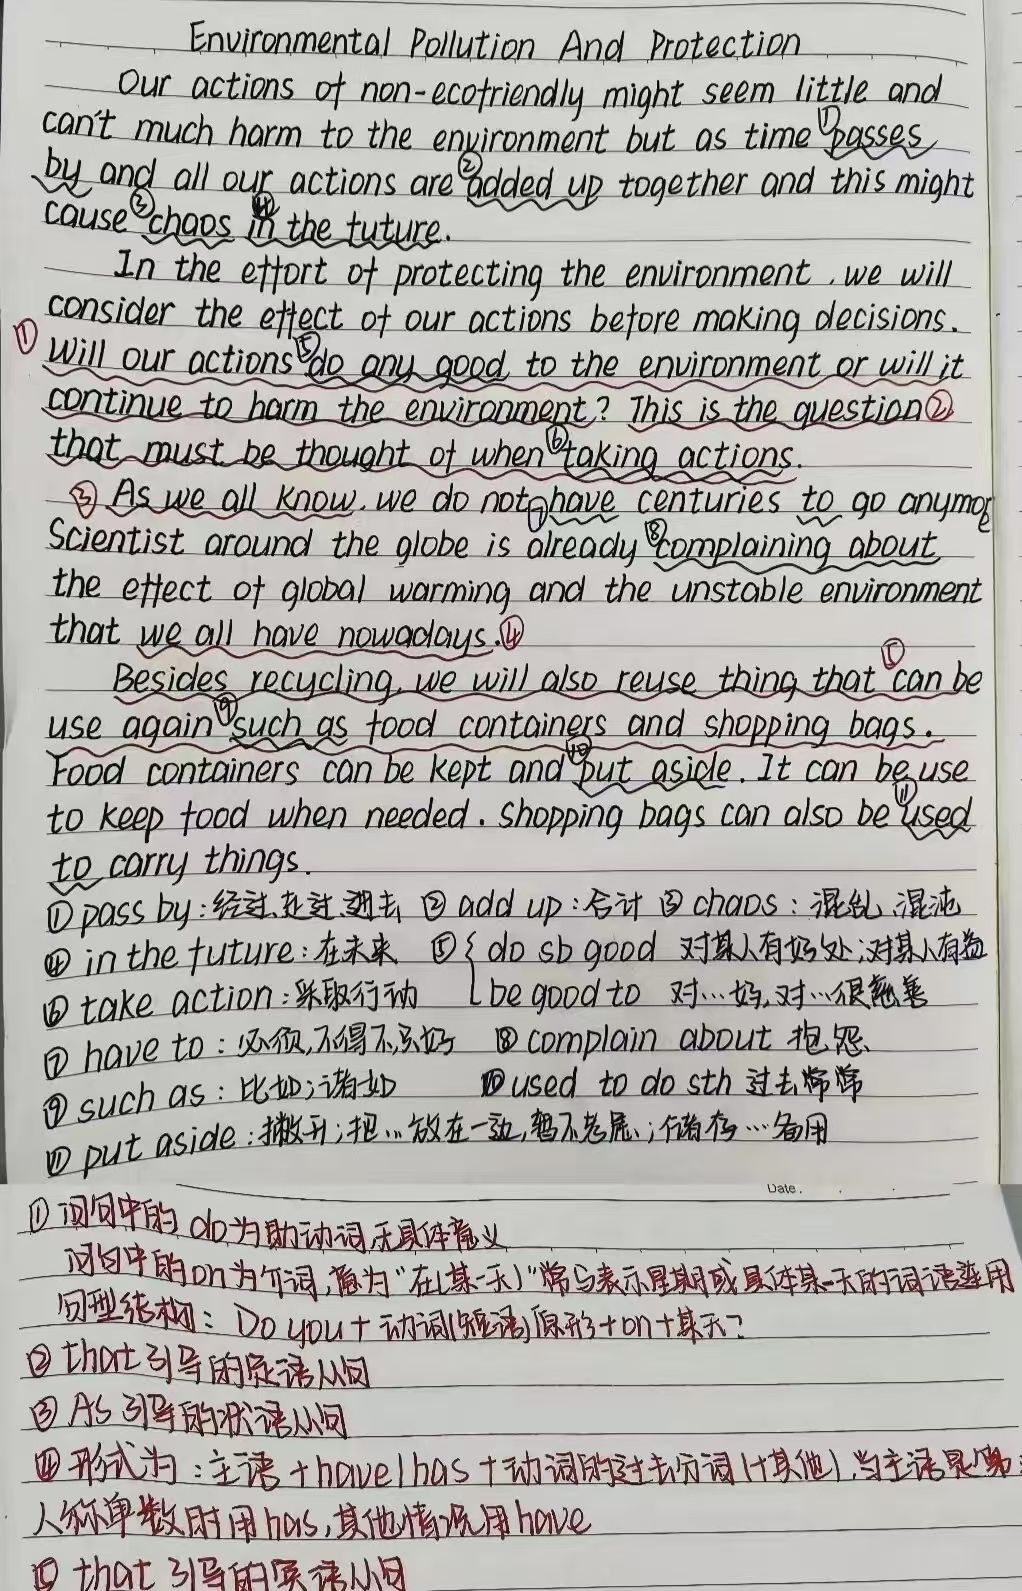 Environmental Pollution And Protection
Our actions of non-ecofriendly might seem little and
can't much harm to the environment but as time ①passes
by and all our actions are ②added up together and this might
cause ③chaos ④in the future.
In the effort of protecting the environment, we will
consider the effect of our actions before making decisions.
① Will our actions ⑤do any good to the environment or will it
continue to harm the environment? This is the question②
that must be thought of when ⑥taking actions.
③ As we all know, we do not ⑦have centuries to go anymore
Scientist around the globe is already ⑧complaining about
the effect of global warming and the unstable environment
that we all have nowadays.④
Besides recycling, we will also reuse thing that ⑤can be
use again ⑨such as food containers and shopping bags.
Food containers can be kept and ⑩put aside. It can be use
to keep food when needed. Shopping bags can also be ⑪used
to carry things.
① pass by: 经过、走过、逝去 ② add up: 合计 ③ chaos: 混乱、混沌
④ in the future: 在未来 ⑤ { do sb good 对某人有好处;对某人有益
⑥ take action: 采取行动 be good to 对…好,对…很慈善
⑦ have to: 必须,不得不 ⑧ complain about 抱怨
⑨ such as: 比如;诸如 ⑩ used to do sth 过去常常
⑪ put aside: 撇开;把…放在一边,暂不考虑;储存…备用
Date.
① 问句中的 do为助动词,无具体意义
问句中的on为介词,意为"在(某一天)"常与表示星期或具体某一天的词语连用
句型结构: Do you + 动词(短语)原形+on+某天?
② that 引导的定语从句
③ As 引导的状语从句
④ 形式为: 主语 + have/has + 动词的过去分词(+其他),当主语是第三
人称单数时用has,其他情况用have
⑤ that 引导的宾语从句